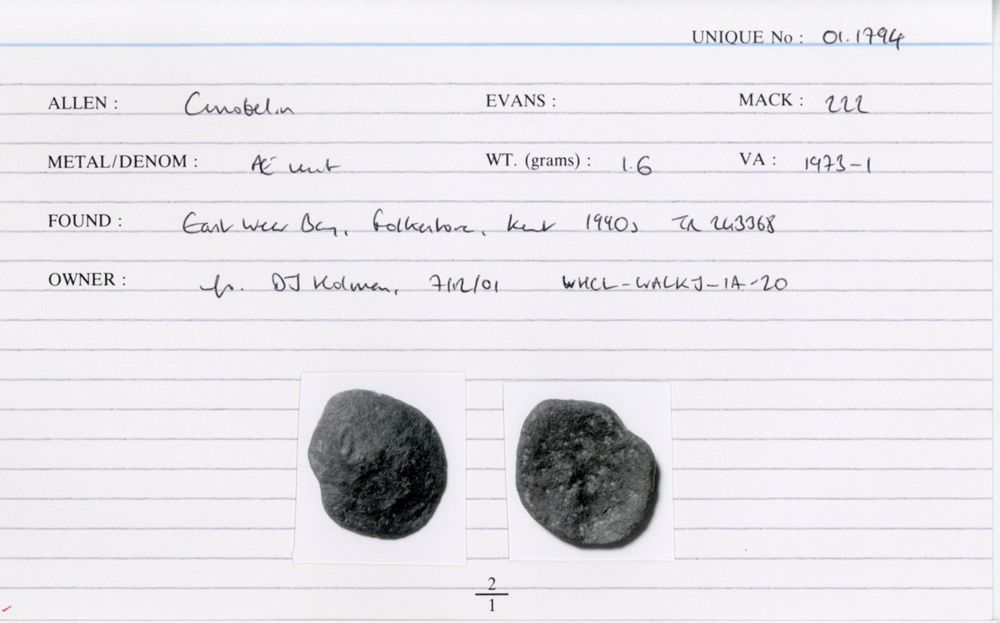 UNIQUE No : 01.1794
ALLEN : Cunobelin EVANS : MACK : 222
METAL/DENOM : Æ unit WT. (grams) : 1.6 VA : 1973-1
FOUND : East Wear Bay, Folkestone, Kent 1990s TR 243368
OWNER : DJ Holman, 7/12/01 WHCL-WALKJ-IA-20
2
1